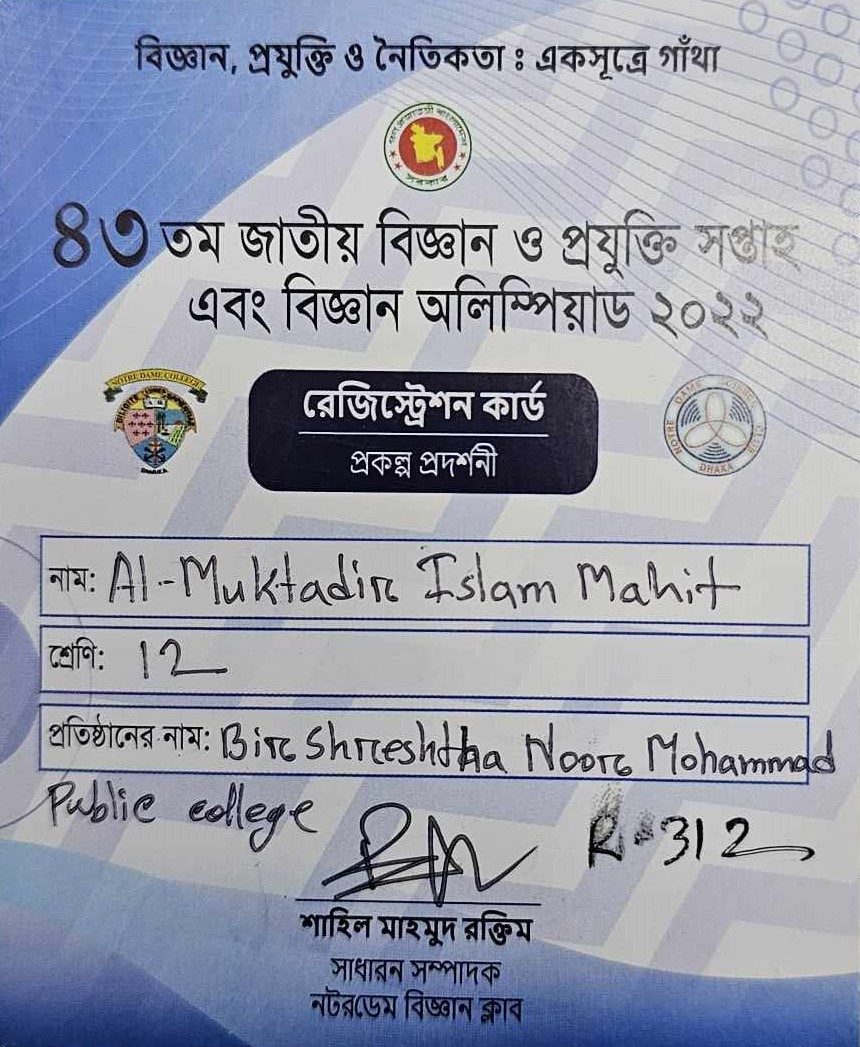 বিজ্ঞান, প্রযুক্তি ও নৈতিকতা : একসূত্রে গাঁথা
গণপ্রজাতন্ত্রী বাংলাদেশ
সরকার
৪৩ তম জাতীয় বিজ্ঞান ও প্রযুক্তি সপ্তাহ
এবং বিজ্ঞান অলিম্পিয়াড ২০২২
NOTRE DAME COLLEGE
DHAKA
রেজিস্ট্রেশন কার্ড
প্রকল্প প্রদর্শনী
NOTRE DAME SCIENCE CLUB
DHAKA
নাম: Al-Muktadir Islam Mahit
শ্রেণি: 12
প্রতিষ্ঠানের নাম: Bir Shreshtha Noor Mohammad
Public college
R-312
শাহিল মাহমুদ রক্তিম
সাধারন সম্পাদক
নটরডেম বিজ্ঞান ক্লাব